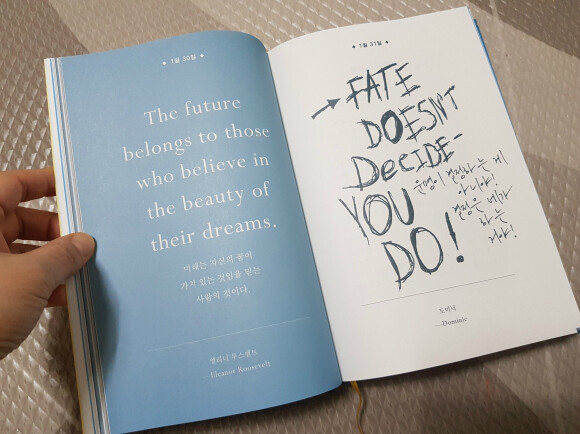 ★ 1월 30일 ★
The future
belongs to those
who believe in
the beauty of
their dreams.
미래는 자신의 꿈이
가치 있는 것임을 믿는
사람의 것이다.
엘리너 루스벨트
—Eleanor Roosevelt
★ 1월 31일 ★
→ FATE
DOESN'T
DECIDE-
YOU
DO!
운명이 결정하는 게
아니야!
결정은 네가
하는
거야!
도미닉
—Dominic